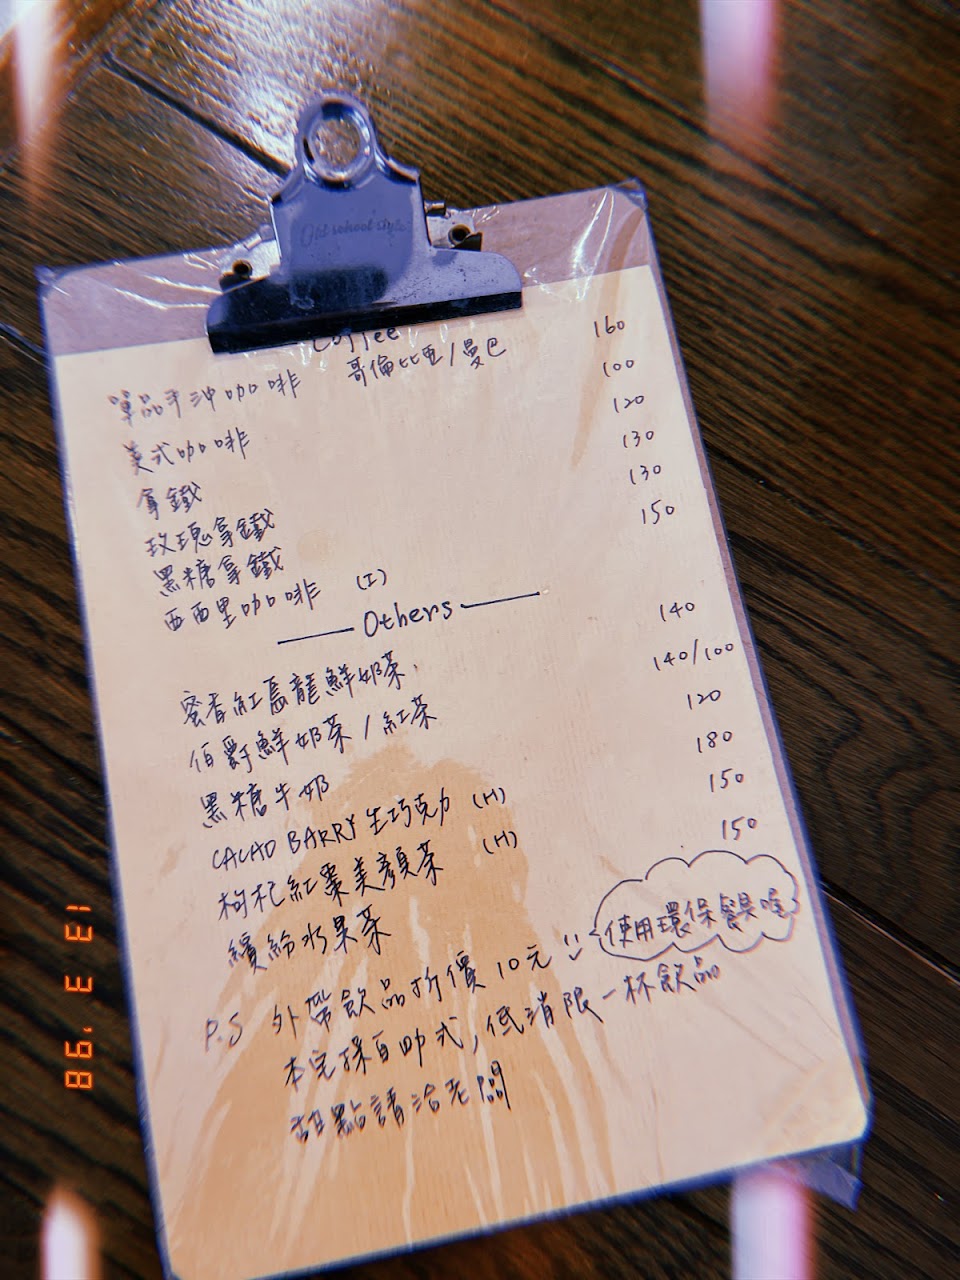 Old school style
Coffee
單品手沖咖啡 哥倫比亞/曼巴 160
美式咖啡 100
拿鐵 120
玫瑰拿鐵 130
黑糖拿鐵 130
西西里咖啡 (I) 150
Others
蜜香紅烏龍鮮奶茶 140
伯爵鮮奶茶/紅茶 140/100
黑糖牛奶 120
CACAO BARRY 生巧克力 (H) 180
枸杞紅棗美顏茶 (H) 150
繽紛水果茶 150
P.S 外帶飲品折價10元
使用環保餐具喔
本店採自助式,低消限一杯飲品
甜點請洽老闆
13 3 '98